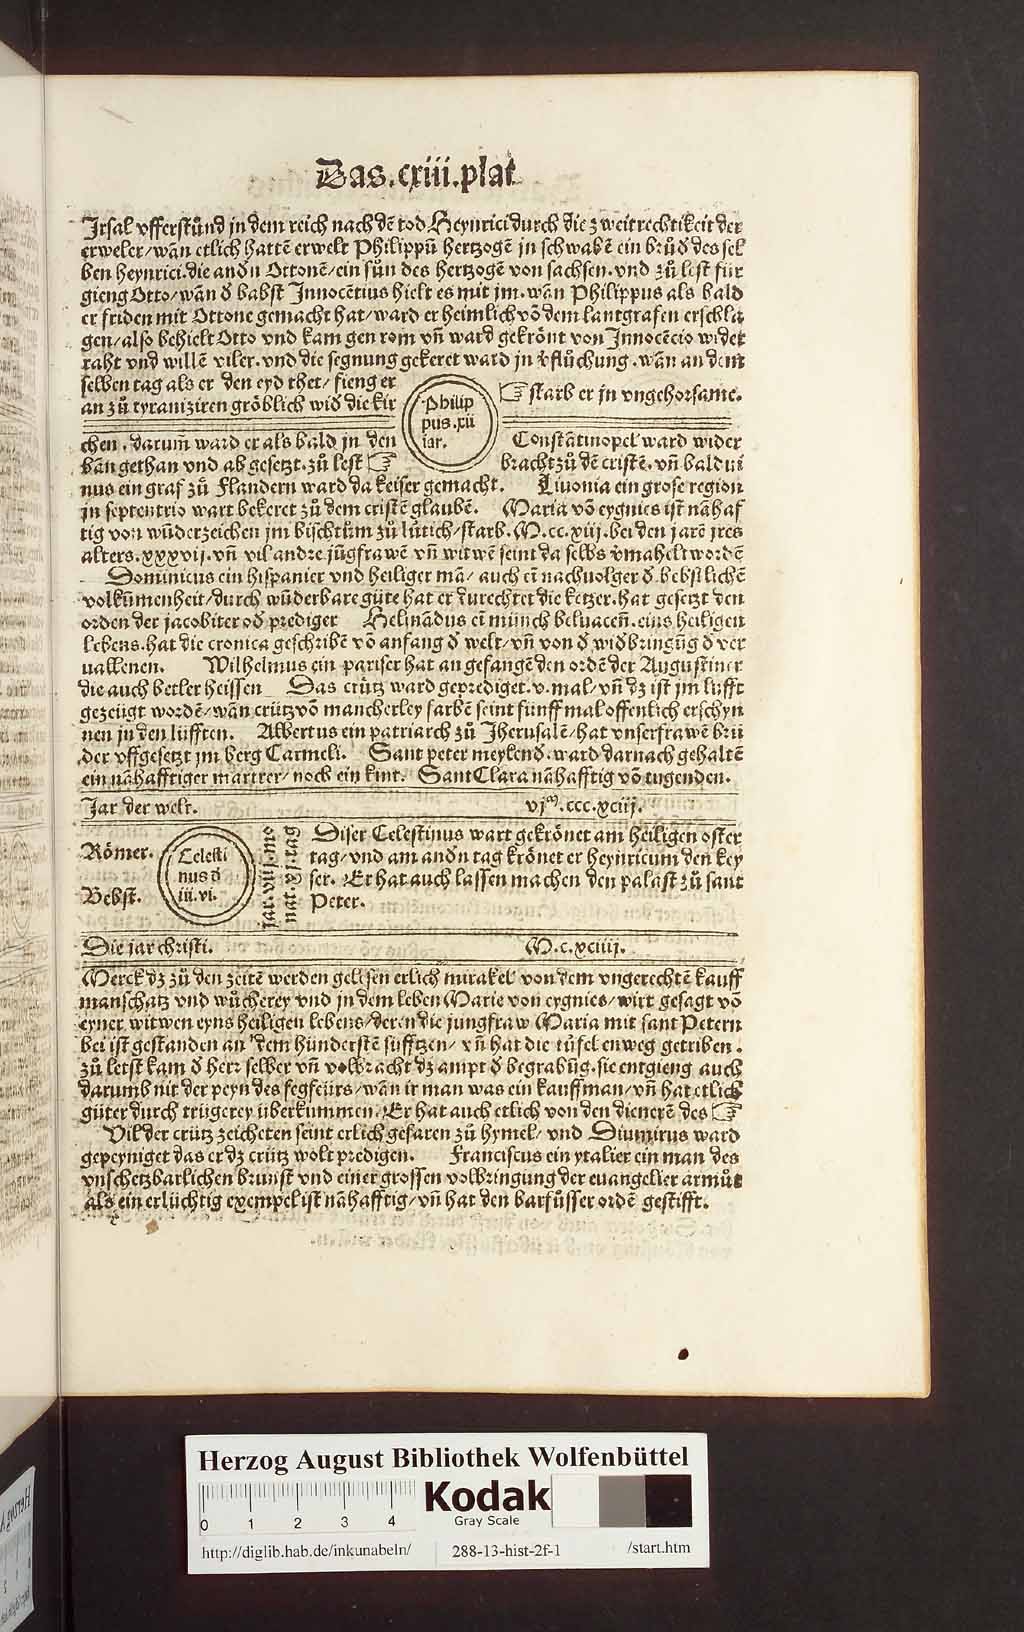 Das.cxiii.plat
Irsal vfferstůnd jn dem reich nach dē tod Heynrici durch die zweitrechtikeit der
erweler/wān etlich hattē erwelt Philippū hertzogē jn schwabē ein brůd des sel
ben heynrici.die andn Ottonē/ein sůn des hertzogē von sachsen.vnd zů lest für
gieng Otto/wān d babst Innocētius hielt es mit jm.wān Philippus als bald
er friden mit Ottone gemacht hat/ward er heimlich vō dem lantgrafen erschla
gen/also behielt Otto vnd kam gen rom vn̄ ward gekrönt von Innocēcio wider
raht vnd willē viler.vnd die segnung gekeret ward jn vflůchung.wān an dem
selben tag als er den eyd thet/fieng er
an zů tyraniziren gröblich wid die kir
Philip
pus.xii
iar.
☞ starb er jn vngehorsame.
chen.darum̄ ward er als bald jn den
bān gethan vnd ab gesetzt.zů lest ☞
Constātinopel ward wider
bracht zů dē cristē.vn̄ baldui
nus ein graf zů Flandern ward da keiser gemacht. Liuonia ein grose region
jn septentrio wart bekeret zů dem cristē glaubē. Maria vō eygnies ist nāhaf
tig von wūderzeichen jm bischtům zů lüttich/starb.M.cc.xiij.bei den jarē jres
alters.xxxvij.vn̄ vil andre jūgfrawē vn̄ witwē seint da selbs vmahelt wordē
Dominicus ein hispanier vnd heiliger mā/auch eī nachuolger d.bebstlichē
volkūmenheit/durch wūderbare güte hat er durechtet die ketzer.hat gesetzt den
orden der jacobiter od prediger Helināndus eī münch beluacen̄.eins heiligen
lebens.hat die cronica geschribē vō anfang d welt/vn̄ von d widbringūg d ver
uallenen. Wilhelmus ein pariser hat an gefangē den ordē der Augustiner
die auch betler heissen Das crütz ward geprediget.v.mal/vn̄ dz ist jm lüfft
gezeügt wordē/wān crütz vō mancherley farbē seint fünff mal offenlich erschyn
nen jn den lüfften. Albertus ein patriarch zů Jherusalē/hat vnser frawē brü
der vffgesetzt jm berg Carmeli. Sant peter meylend.ward darnach gehaltē
ein nāhafftiger martrer/noch ein kint. Sant Clara nāhafftig vō tugenden.
Jar der welt. vjm.ccc.xciij.
Römer.
Bebst.
Celesti
nus d
iii.vi.
jar.viij.mo
nat.xj.tag
Diser Celestinus wart gekrönet am heiligen oster
tag/vnd am andn tag krönet er heynricum den key
ser. Er hat auch lassen machen den palast zů sant
Peter.
Die jar christi. M.c.xciiij.
Merck dz zů den zeitē werden gelesen etlich mirakel von dem vngerechtē kauff
manschatz vnd wůcherey vnd jn dem leben Marie von eygnies/wirt gesagt vō
eyner witwen eyns heiligen lebens/deren die jungfraw Maria mit sant Petern
bei ist gestanden an dem hünderstē süfftzen/vn̄ hat die tüfel enweg getriben.
zů letst kam d herr selber vn̄ volbracht dz ampt d begrabūg.sie entgieng auch
darumb nit der peyn des fegfeürs/wān ir man was ein kauffman/vn̄ hat etlich
güter durch trügerey überkummen. Er hat auch etlich von den dienerē des ☞
Vil der crütz zeicheten seint etlich gefaren zů hymel/vnd Diuturus ward
gepeyniget das er dz crütz wolt predigen. Franciscus ein ytalier ein man des
vnschetzbarlichen brunst vnd einer grossen volbringung der euangelier armůt
als ein erlüchtig exempel ist nāhafftig/vn̄ hat den barfůsser ordē gestifft.
Herzog August Bibliothek Wolfenbüttel
0 1 2 3 4
Kodak
Gray Scale
http://diglib.hab.de/inkunabeln/ 288-13-hist-2f-1 /start.htm